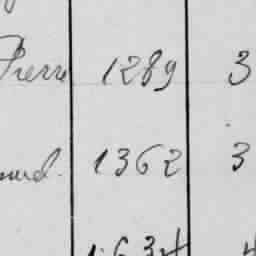 Pierre 1289 3
1362 3
1634 4